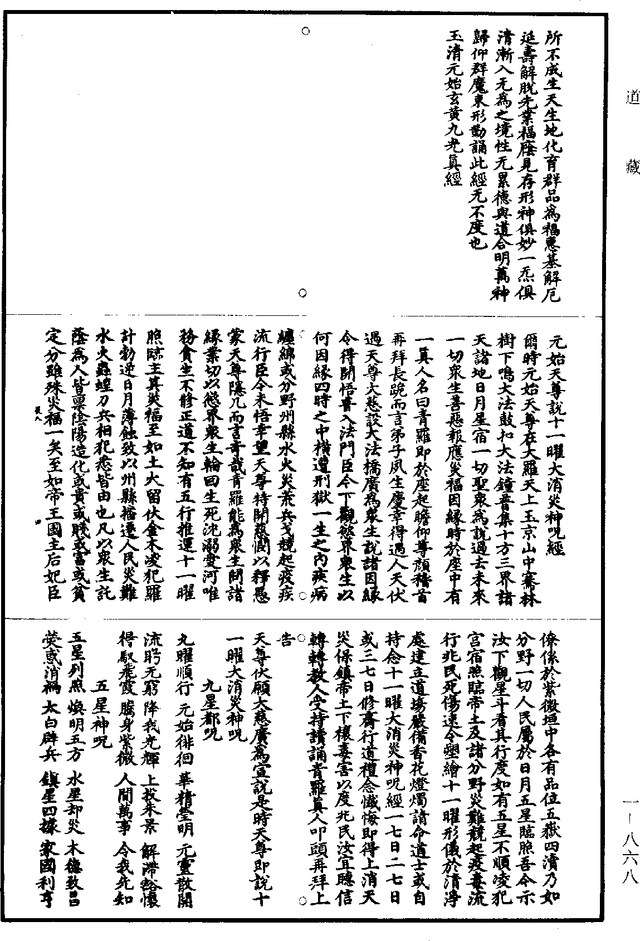 道藏
所不成生天生地化育群品爲福惠基解厄
延壽解脫先業福廕見存形神俱妙一炁俱
清漸入无爲之境性无累德與道合明萬神
歸仰群魔束形勤誦此經无不度也
玉清元始玄黄九光真經
元始天尊說十一曜大消災神呪經
爾時元始天尊在大羅天上玉京山中騫林
樹下鳴大法鼓扣大法鐘普集十方三界諸
天諸地日月星宿一切聖衆爲說過去未來
一切衆生善惡報應災福因緣時於座中有
一真人名曰青羅即於座起瞻仰尊顏稽首
再拜長跪而言弟子夙生慶幸得遇人天伏
過天尊大慈設大法橋廣爲衆生說諸因緣
令得開悟普入法門臣今下觀欲界衆生以
何因緣四時之中橫遭刑獄一生之内疾病
纏綿或分野州縣水火災荒兵戈競起疫疾
流行臣今未悟幸望天尊特開慈憫以釋愚
蒙天尊隱几而言奇哉青羅能爲衆生問諸
緣業切以慾界衆生輪回生死沈溺愛河唯
務貪生不修正道不知有五行推運十一曜
照臨主其災福至如土火留伏金木凌犯羅
計勃逆日月薄蝕致以州縣播遷人民災難
水火蟲蝗刀兵相犯悉皆由也凡以衆生託
蔭爲人皆稟陰陽造化或貴或賤或富或貧
定分雖殊災福一矣至如帝王國主后妃臣
僚係於紫微垣中各有品位五嶽四瀆乃如
分野一切人民屬於日月五星臨照吾今示
汝下觀星斗看其行度如有五星不順凌犯
宮宿照臨帝土及諸分野災難競起疫毒流
行兆民死傷速令塑繪十一曜形儀於清淨
處建立道場嚴備香花燈燭請命道士或自
持念十一曜大消災神呪經一七日二七日
或三七日修齋行道禮念懺悔即得上消天
災保鎮帝土下禳毒害以度兆民汝宜聽信
轉轉教人受持讀誦青羅真人叩頭再拜上
告
天尊伏願大慈廣爲宣說是時天尊即說十
一曜大消災神呪
九星都呪
九曜順行 元始徘徊 華精瑩明 元靈散開
流眄无窮 降我光輝 上投朱景 解滯豁懷
得馭飛霞 騰身紫微 人間萬事 令我先知
五星神呪
五星列照 煥明五方 水星却災 木德致昌
熒惑消禍 太白辟兵 鎮星四據 家國利亨
一－八六八